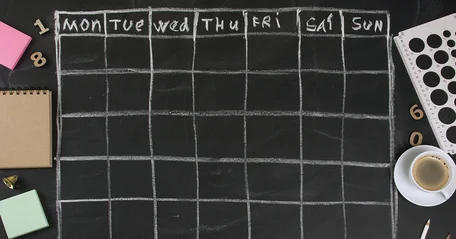 MON TUE wed THU FRi SAT SUN
1
8
6
0